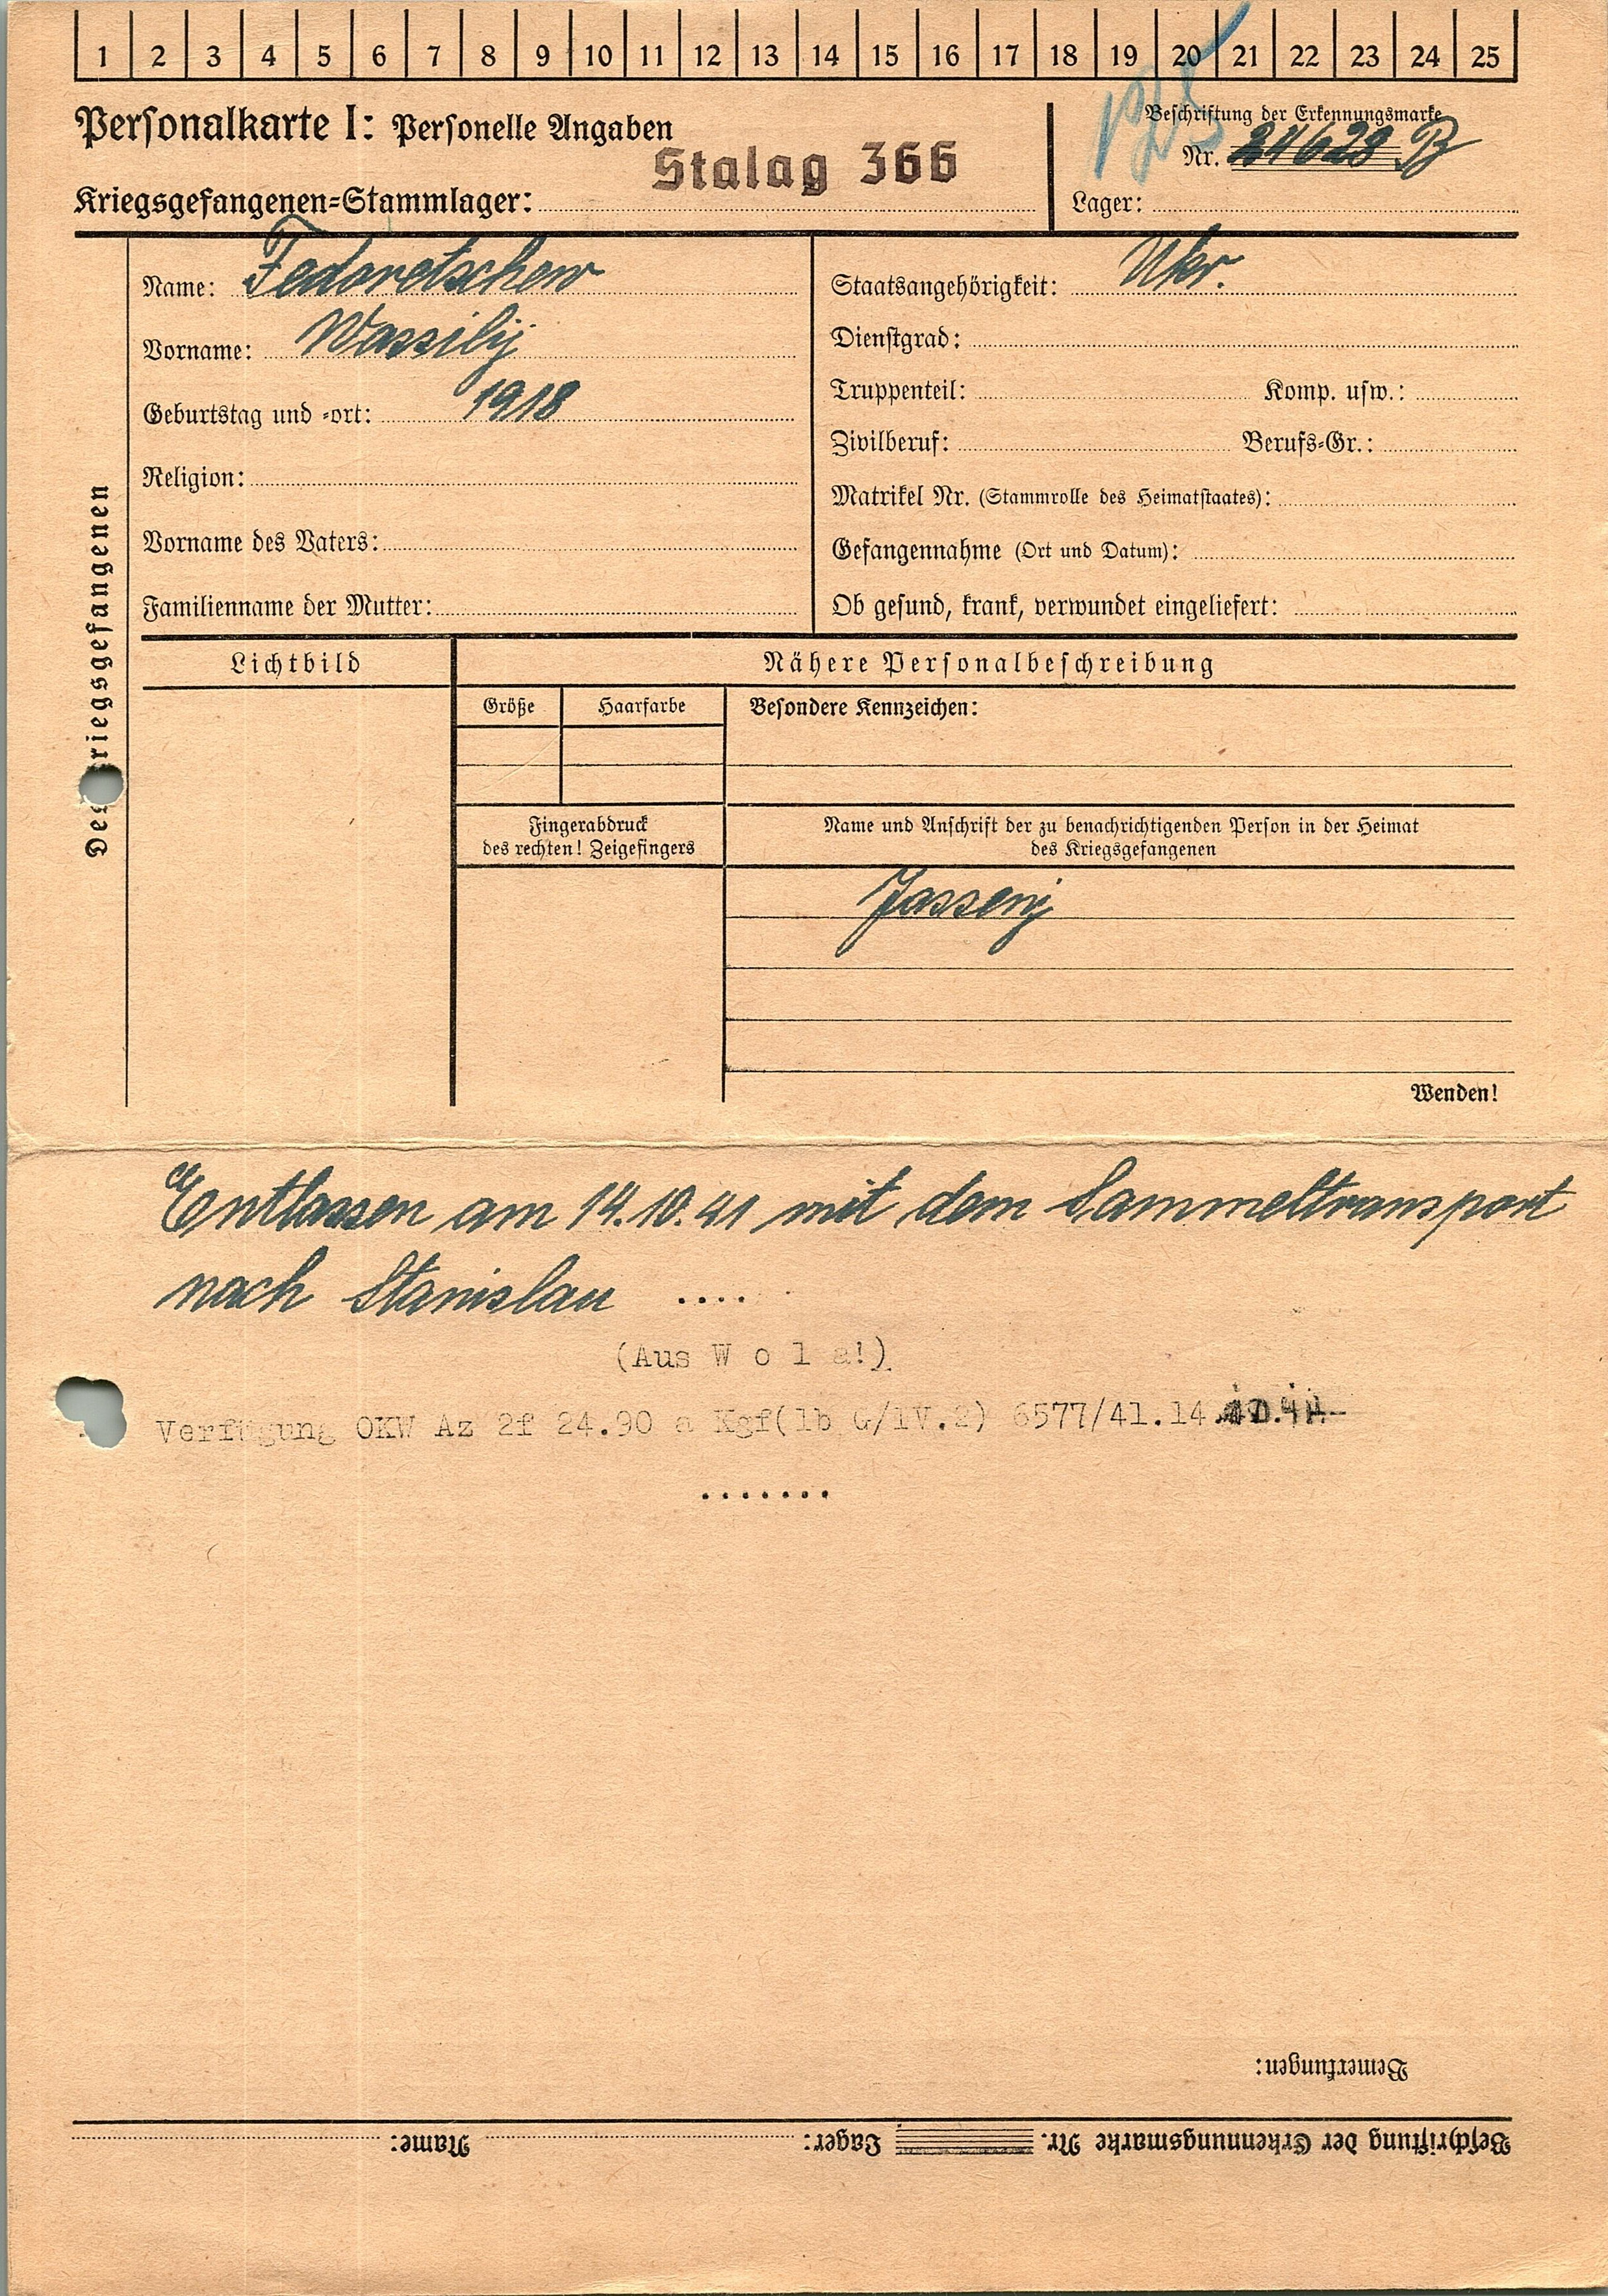 1 2 3 4 5 6 7 8 9 10 11 12 13 14 15 16 17 18 19 20 21 22 23 24 25
Personalkarte I: Personelle Angaben
Beschriftung der Erkennungsmarke
Nr. 24628 B
Stalag 366
Kriegsgefangenen-Stammlager:
Lager:
Des Kriegsgefangenen
Name: Fedoretschew
Vorname: Wassilij
Geburtstag und -ort: 1918
Religion:
Vorname des Vaters:
Familienname der Mutter:
Staatsangehörigkeit: Ukr.
Dienstgrad:
Truppenteil: Komp. usw.:
Zivilberuf: Berufs-Gr.:
Matrikel Nr. (Stammrolle des Heimatstaates):
Gefangennahme (Ort und Datum):
Ob gesund, krank, verwundet eingeliefert:
Lichtbild
Nähere Personalbeschreibung
Größe Haarfarbe Besondere Kennzeichen:
Fingerabdruck
des rechten! Zeigefingers
Name und Anschrift der zu benachrichtigenden Person in der Heimat
des Kriegsgefangenen
Jassenj
Wenden!
Entlassen am 14.10.41 mit dem Sammeltransport
nach Stanislau ....
(Aus W o l a!)
Verfügung OKW Az 2f 24.90 a Kgf(lb G/lV.2) 6577/41.14
.......
Bemerkungen:
Beschriftung der Erkennungsmarke Nr. Lager: Name: